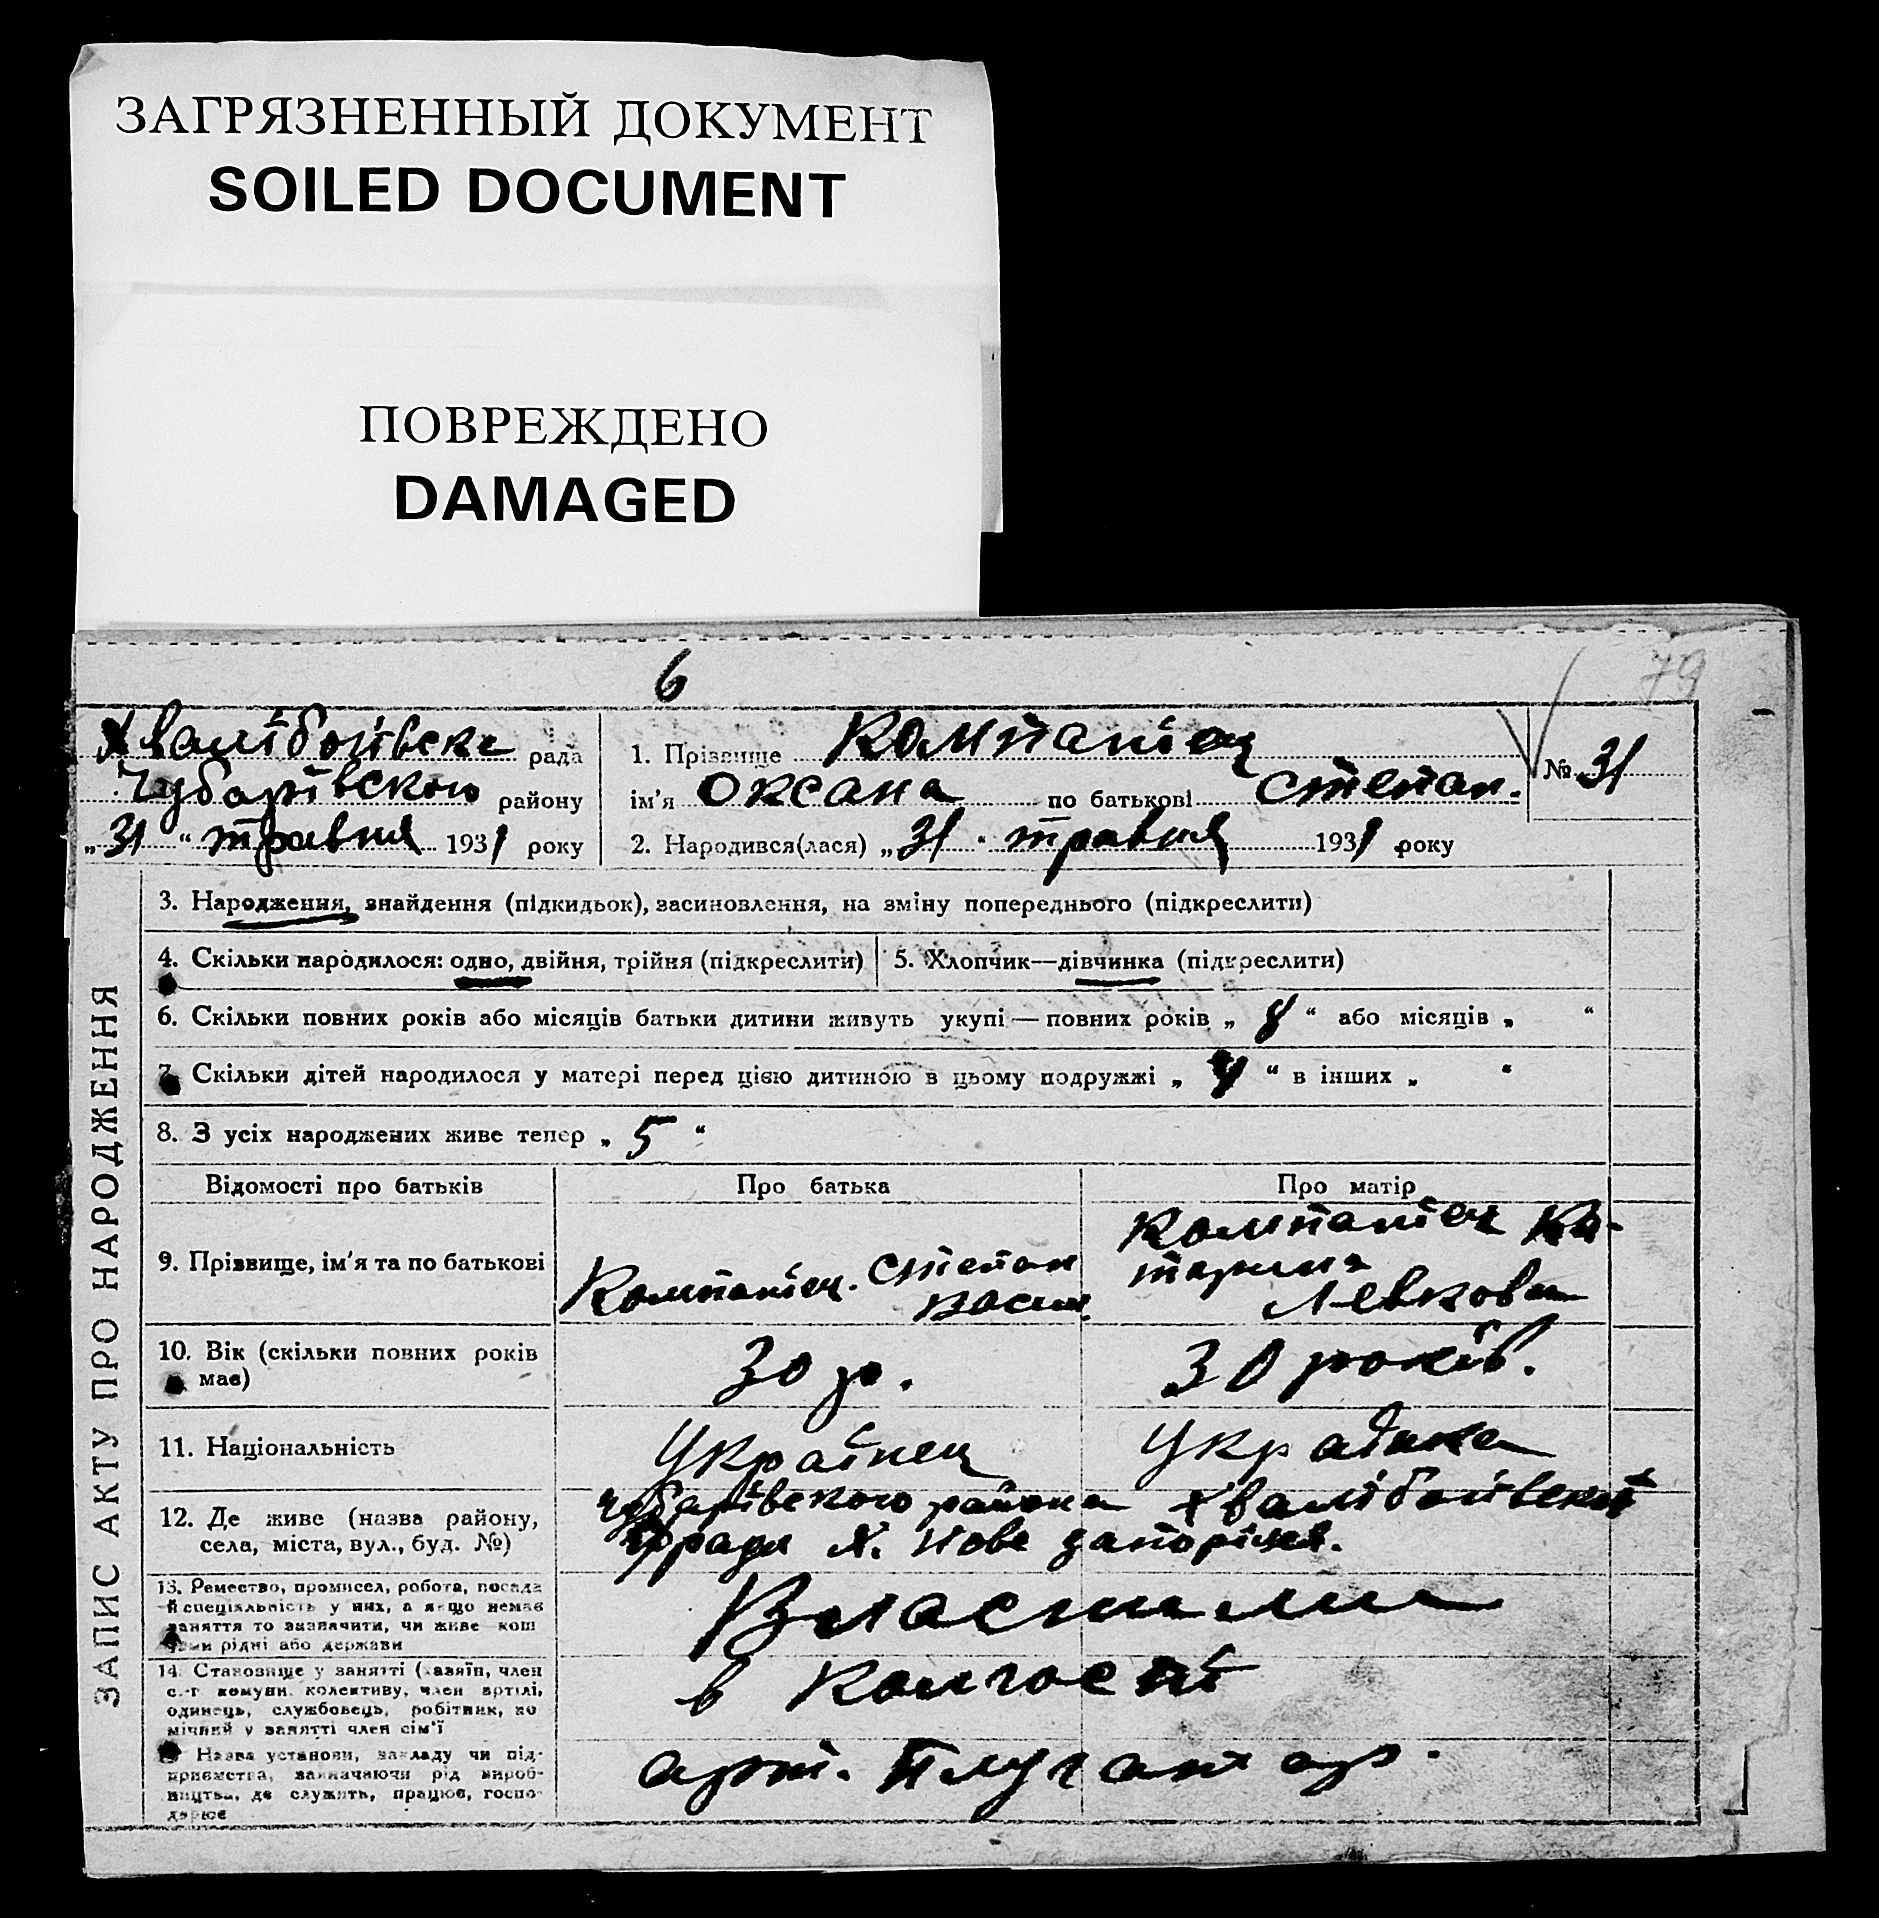 ЗАГРЯЗНЕННЫЙ ДОКУМЕНТ
SOILED DOCUMENT
ПОВРЕЖДЕНО
DAMAGED
6
79
Хвалібоївська рада
Чубарівського району
„31“ травня 1931 року
1. Прізвище Компанієц
ім'я Оксана по батькові Степан.
2. Народився(лася) „31“ травня 1931 року
№ 31
ЗАПИС АКТУ ПРО НАРОДЖЕННЯ
3. Народження, знайдення (підкидьок), засиновлення, на зміну попереднього (підкреслити)
4. Скільки народилося: одно, двійня, трійня (підкреслити)
5. Хлопчик—дівчинка (підкреслити)
6. Скільки повних років або місяців батьки дитини живуть укупі — повних років „ 8 “ або місяців „ “
7. Скільки дітей народилося у матері перед цією дитиною в цьому подружжі „ 4 “ в інших „ “
8. З усіх народжених живе тепер „ 5 “
Відомості про батьків Про батька Про матір
9. Прізвище, ім'я та по батькові
Компанієц. Степан
Васил
Компанієц Ка-
терина
Левкови
10. Вік (скільки повних років
має)
30 р.
30 років.
11. Національність
Українец
Українка
12. Де живе (назва району,
села, міста, вул., буд. №)
Чубарівського района Хвалібоївської
с/ради х. Нове запоріжя.
13. Ремество, промисел, робота, посада
й спеціяльність у них, а якщо немає
заняття то зазначити, чи живе кош
тами рідні або держави
14. Становище у занятті (хазяїн, член
с.-г комуни, колективу, член артілі,
одинець, службовець, робітник, по
мічний у занятті член сім'ї
в колгоспі
Назва установи, закладу чи під-
приємства, зазначаючи рід вироб-
ництва, де служить, працює, госпо-
дарює
арт. Плугатар.